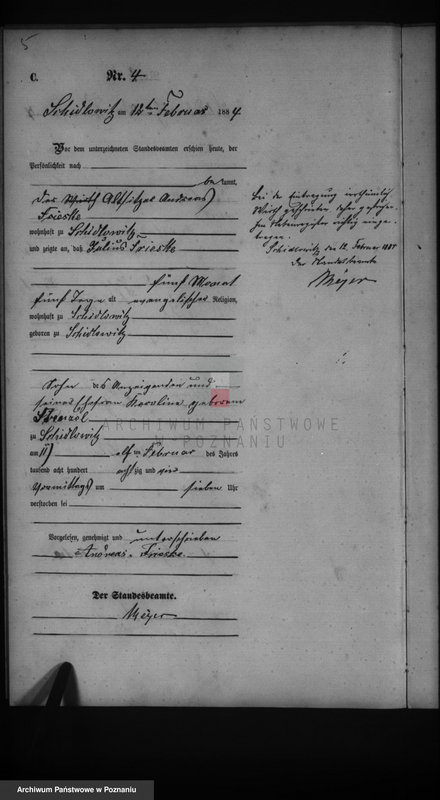 5
C. Nr. 4
Schidlowitz am 12ten Februar 1884
Vor dem unterzeichneten Standesbeamten erschien heute, der
Persönlichkeit nach
bekannt,
der Altsitzer Andreas
Frieske
wohnhaft zu Schidlowitz
und zeigte an, daß Julius Frieske
fünf Monat
fünf Tage alt evangelischer Religion,
wohnhaft zu Schidlowitz
geboren zu Schidlowitz
Sohn des Anzeigenden und
seiner Ehefrau Karoline geborenen
zu Schidlowitz
am elften Februar des Jahres
tausend acht hundert achtzig und vier
Vormittags um sieben Uhr
verstorben sei
Vorgelesen, genehmigt und unterschrieben
Andreas Frieske
Der Standesbeamte.
Meyer
Bei der Eintragung
Schidlowitz, den 12. Februar 1884
Der Standesbeamte
Meyer
ARCHIWUM PAŃSTWOWE
W POZNANIU
Archiwum Państwowe w Poznaniu